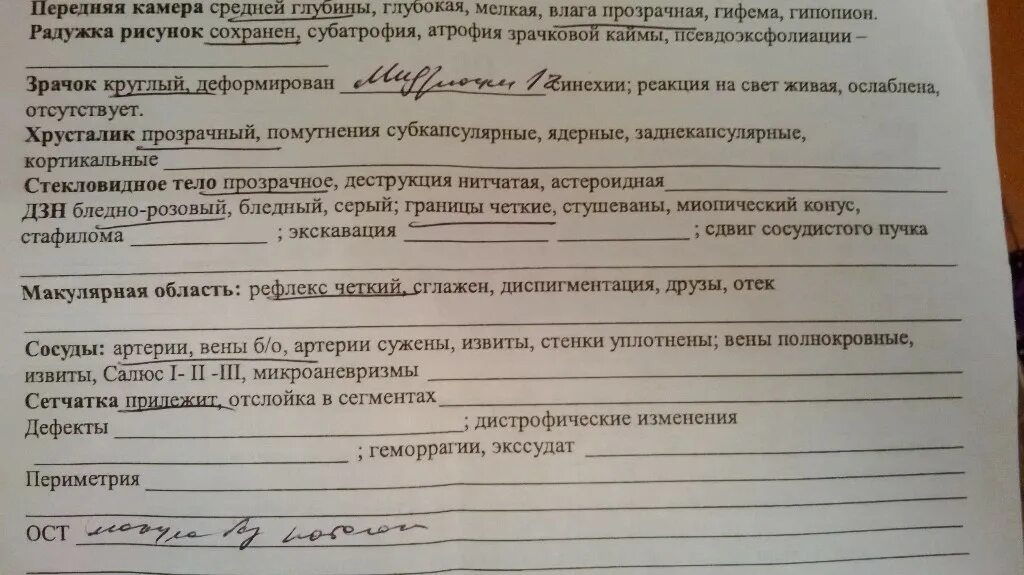 Передняя камера средней глубины, глубокая, мелкая, влага прозрачная, гифема, гипопион.
Радужка рисунок сохранен, субатрофия, атрофия зрачковой каймы, псевдоэксфолиации –
Зрачок круглый, деформирован синехии; реакция на свет живая, ослаблена,
отсутствует.
Хрусталик прозрачный, помутнения субкапсулярные, ядерные, заднекапсулярные,
кортикальные
Стекловидное тело прозрачное, деструкция нитчатая, астероидная
ДЗН бледно-розовый, бледный, серый; границы четкие, стушеваны, миопический конус,
стафилома ; экскавация ; сдвиг сосудистого пучка
Макулярная область: рефлекс четкий, сглажен, диспигментация, друзы, отек
Сосуды: артерии, вены б/о, артерии сужены, извиты, стенки уплотнены; вены полнокровные,
извиты, Салюс I- II -III, микроаневризмы
Сетчатка прилежит, отслойка в сегментах
Дефекты ; дистрофические изменения
; геморрагии, экссудат
Периметрия
ОСТ